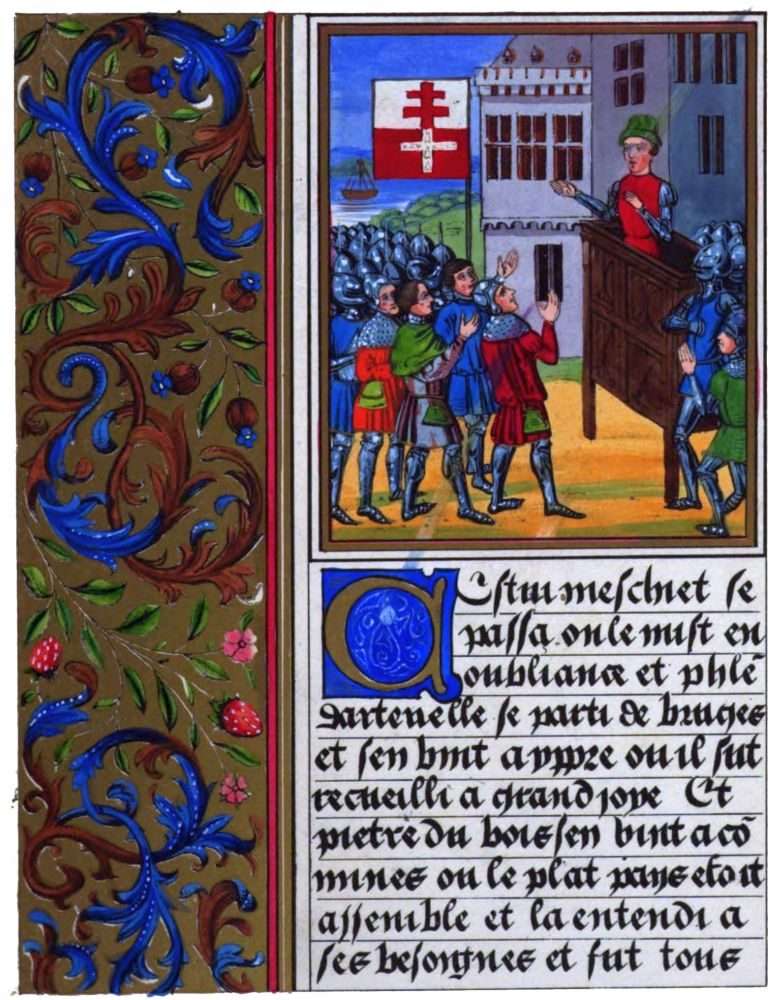 Cstui meschief se
passa on le mist en
oubliance et phlē
dartevelle se parti de bruges
et sen vint a yppre ou il fut
recueilli a grand joye Et
pietre du bois sen vint a cō
mines ou le plat pays estoit
assemble et la entendi a
ses besoignes et fut tous